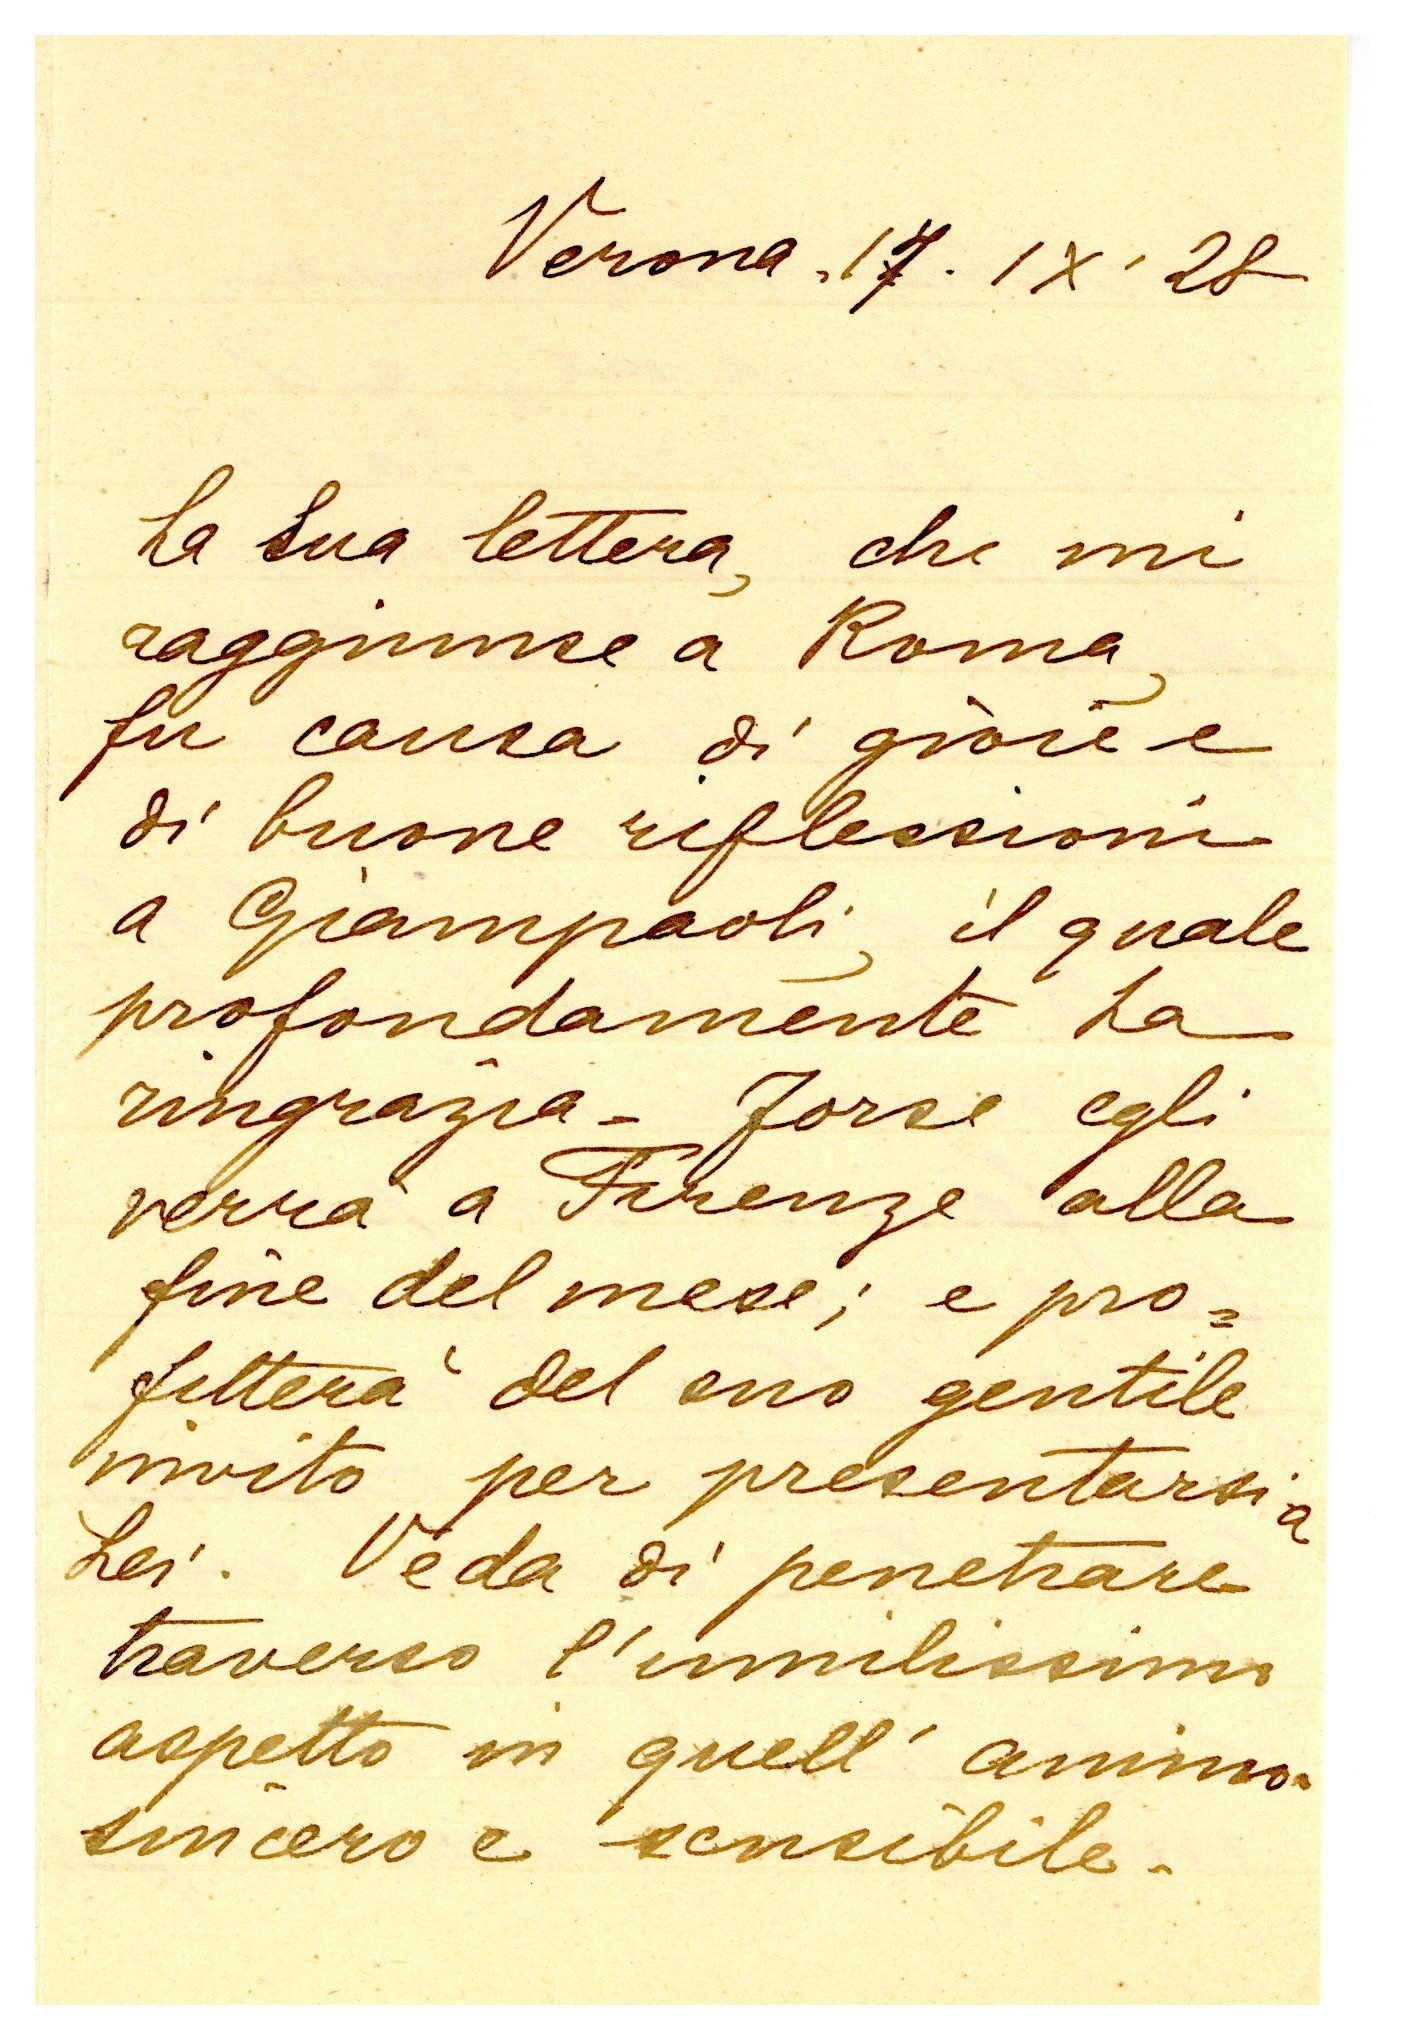 Verona. 17. IX. 28
La Sua lettera, che mi
raggiunse a Roma,
fu causa di gioie e
di buone riflessioni
a Giampaoli, il quale
profondamente La
ringrazia - Forse egli
verrà a Firenze alla
fine del mese; e pro=
fitterà del suo gentile
invito per presentarsi a
Lei. Veda di penetrare
traverso l'umilissimo
aspetto in quell'animo
sincero e sensibile.